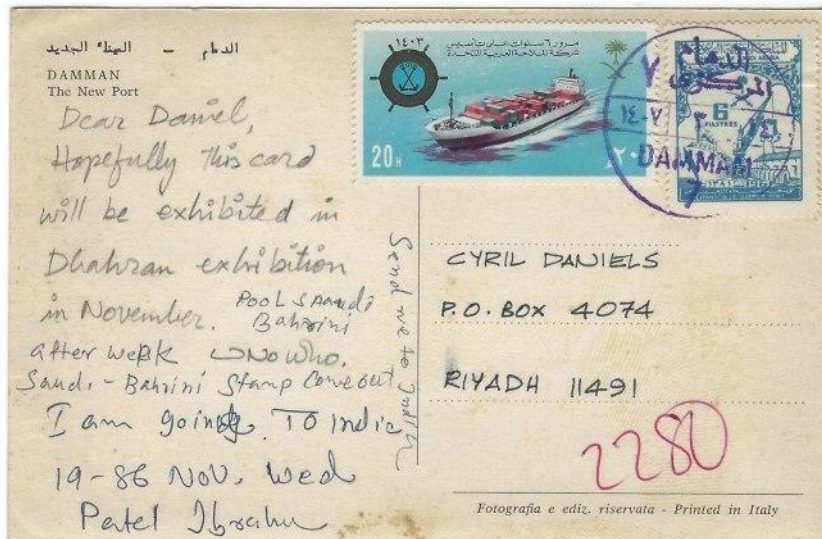 الدمام - الميناء الجديد
DAMMAN
The New Port
Dear Daniel,
Hopefully This card
will be exhibited in
Dhahran exhibition
in November.
Pool Saudi
Bahrini
after week UNO Who.
Saudi - Bahrini Stamp Come out
I am going TO India
19-86 NOV. Wed
Patel Ibrahim
Send me to India
١٤٠٣
مرور ٦ سنوات على تأسيس
شركة الملاحة العربية المتحدة
20 H
٢٠
الدمام
المركزي
٧
١٤٠٧
DAMMAM
7
6
PIASTRES
CYRIL DANIELS
P.O. BOX 4074
RIYADH 11491
2280
Fotografia e ediz. riservata - Printed in Italy